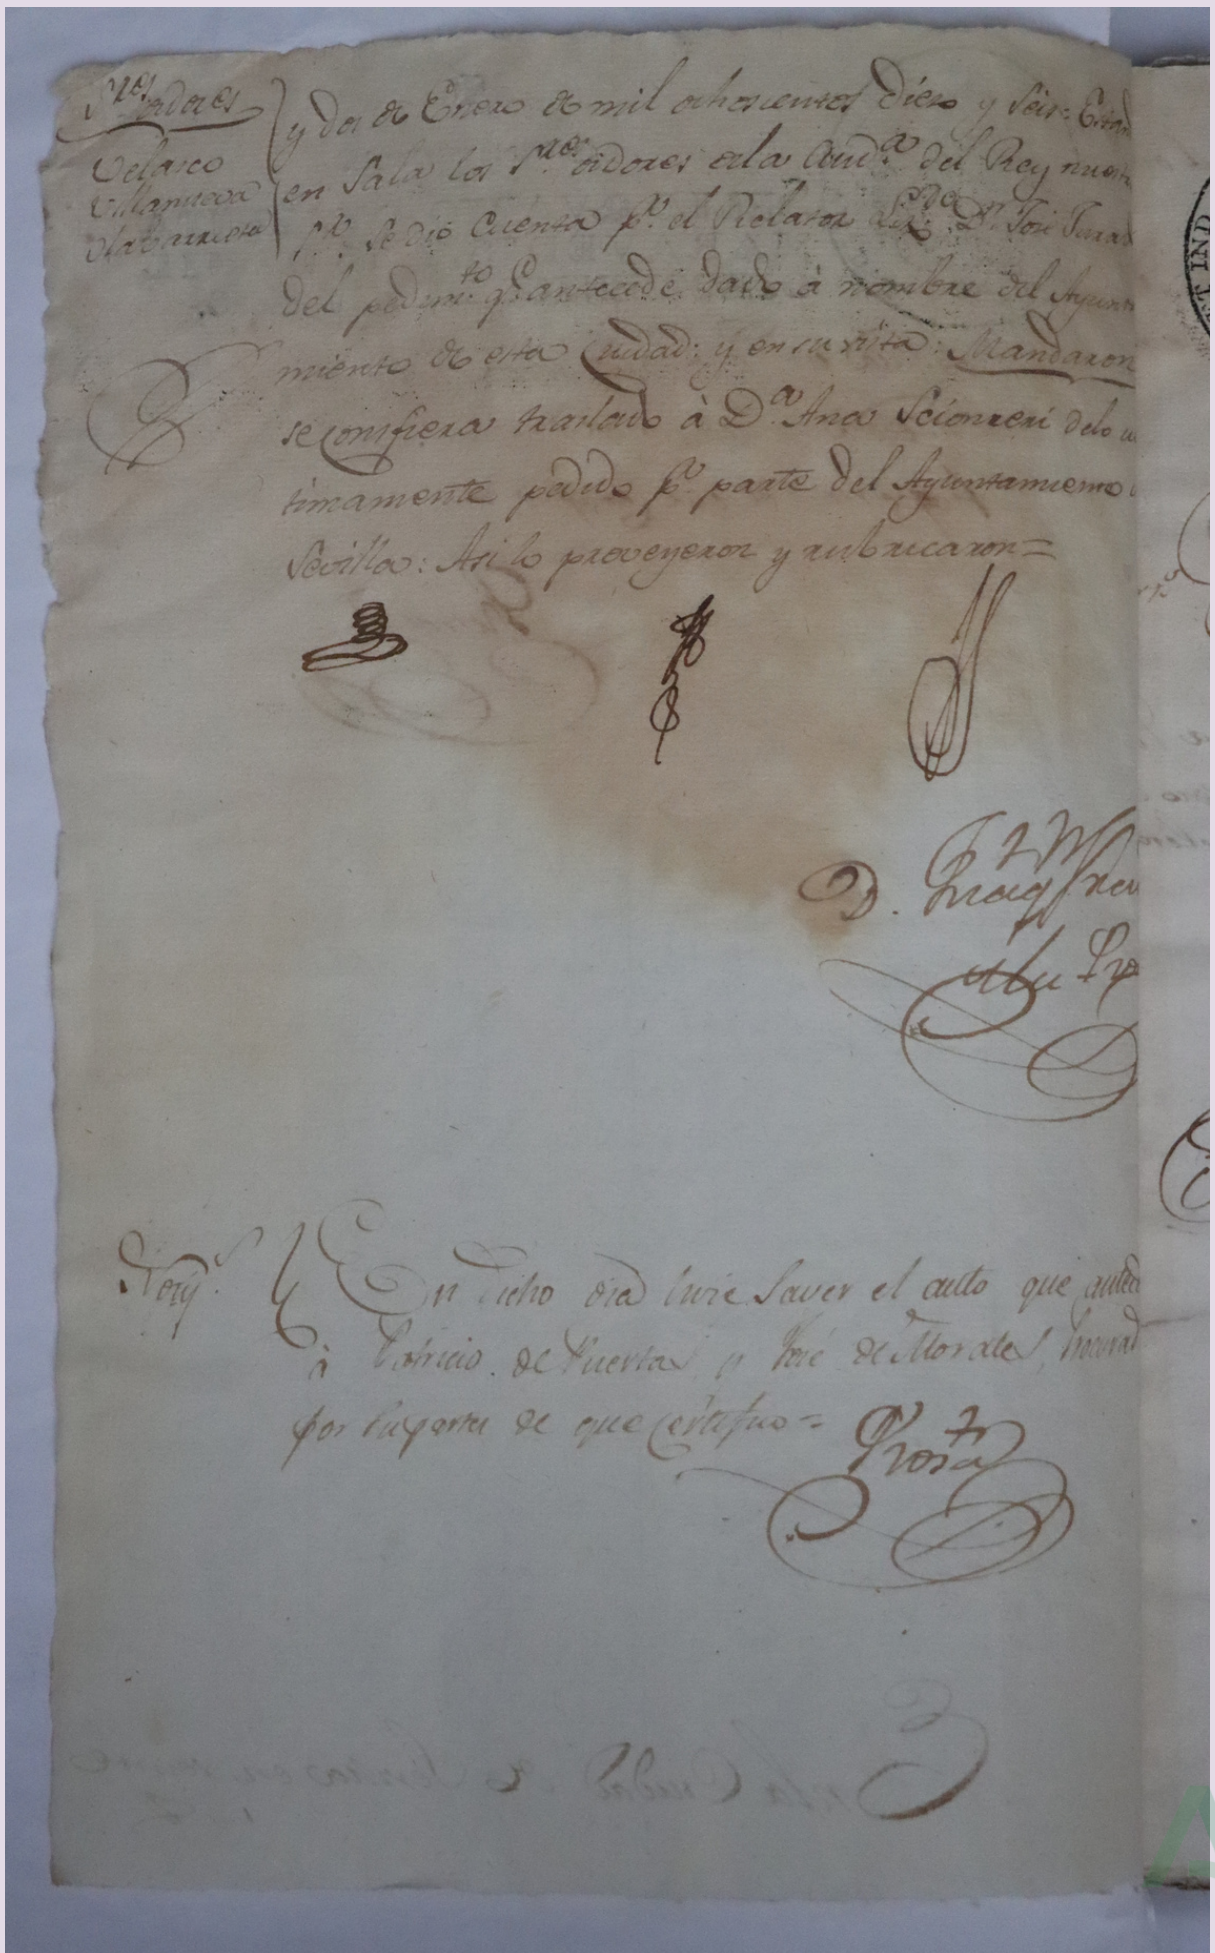 S.res oidores
Velasco
Villanueva
Olavarrieta
y dos de Enero de mil ochocientos diez y seis: Estand
en Sala los S.res oidores de la Aud.a del Rey nuestr
S.or se dió Cuenta p.r el Relator Liz.do D.n José Jurad
del pedim.to q.e antecede dado á nombre del Ayunta
miento de esta Ciudad: y en su vista: Mandaron
se confiera traslado á D.a Ana Scionreri de lo ul
timamente pedido p.r parte del Ayuntamiento d
Sevilla: Asi lo proveyeron y rubricaron=
D.
Notif.n
En dicho dia hice saver el auto que anteced
á Patricio de Puertas y José de Morales, Procurad
por su parte de que certifico=